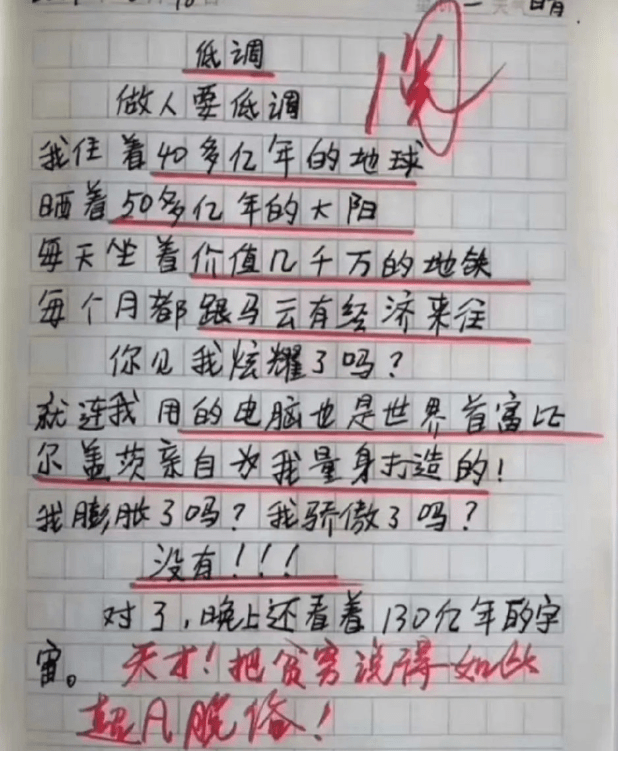 晴
低调
做人要低调
我住着40多亿年的地球
晒着50多亿年的太阳
每天坐着价值几千万的地铁
每个月都跟马云有经济来往
你见我炫耀了吗?
就连我用的电脑也是世界首富比
尔盖茨亲自为我量身打造的!
我膨胀了吗?我骄傲了吗?
没有!!!
对了,晚上还看着130亿年的宇
宙。天才!把贫穷说得如此
超凡脱俗!